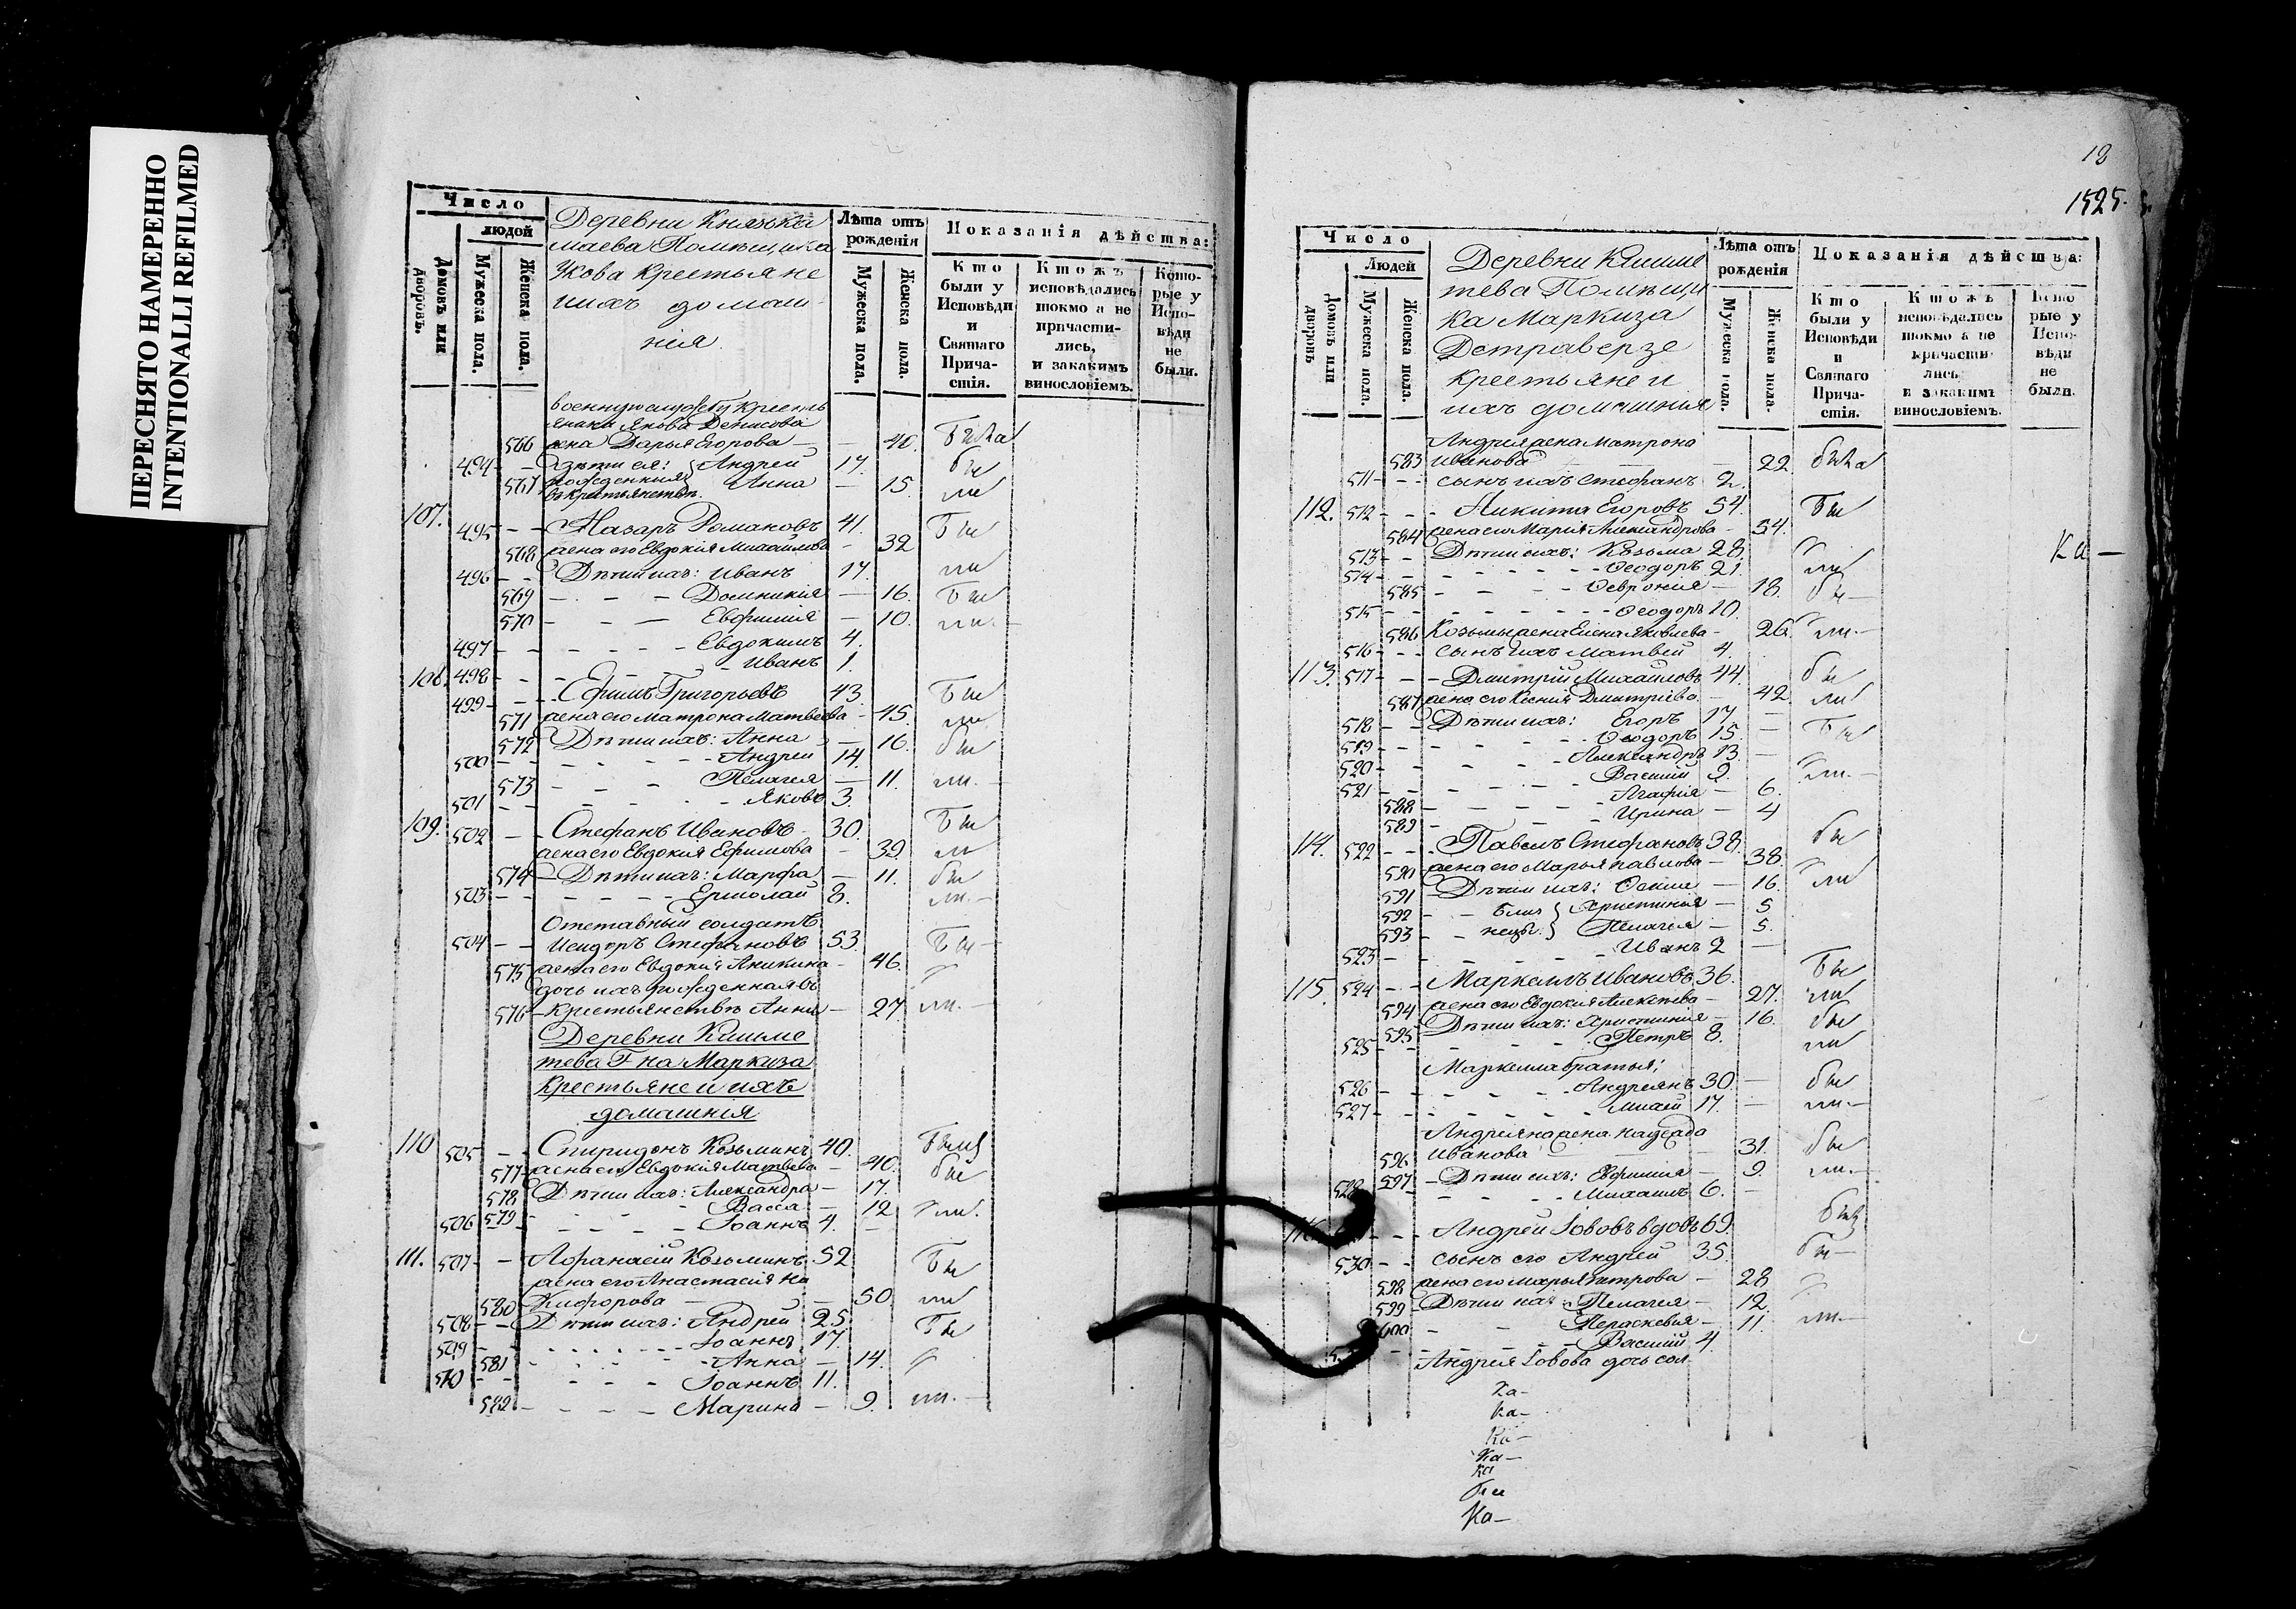 ПЕРЕСНЯТО НАМЕРЕННО
INTENTIONALLI REFILMED
Число
людей
Домовъ или дворовъ.
Мужеска пола.
Женска пола.
Деревни Князька
маева Помѣщика
Укова Крестьяне
ихъ домаш
нія
Лѣта отъ рожденія
Мужеска пола.
Женска пола.
Показанія дѣйства:
Кто были у Исповѣди и Святаго Прича-стія.
Ктожъ исповѣдались токмо а не причасти-лись, и закакимъ винословіемъ.
Кото-рые у Испо-вѣди не были.
военную службу крестья
янина Якова Денисова
566 жена Дарья Егорова — — 40. Была
494 — дѣти ея: Андрей 17. бы
567 рожденныя въ крестьянствѣ Анна — 15. ли
107. 495 — — Назаръ Романовъ 41. Бы
568 жена его Евдокия Михайлова — 32
496 — — Дѣти ихъ: Иванъ 17. ли
569 — — — Домникия — 16. Бы
570 — — — Евфимия — 10. ли. —
497 — — — — Евдокимъ 4.
108. 498 — — — — Иванъ 1.
499 — — — Ефимъ Григорьевъ 43. Бы
571 жена его Матрона Матвеева — 45. ли
572 Дѣти ихъ: Анна — 16. бы
500 — — — — Андрей 14.
573 — — — Пелагея — 11. ли. —
501 — — — — Яковъ 3.
109. 502 — — Стефанъ Ивановъ 30. Бы
жена его Евдокия Ефимова — 39. ли
574 — Дѣти ихъ: Марфа — 11. бы
503 — — — — Ермолай 8. ли. —
Отставный солдатъ
504 — — Исидоръ Стефановъ 53. Бы —
575 жена его Евдокия Аникина — 46.
дочь ихъ рожденная въ
576 — Крестьянствѣ Анна — 27. ли. —
Деревни Кишме
тева Г на Маркиза
Крестьяне и ихъ
домашнія
110 505 — — Спиридонъ Козьминъ 40.
577 жена его Евдокия Матвева — 40. бы
578 Дѣти ихъ: Александра — 17.
579 — — — Васса — 12 ли.
506 — — — — Іоаннъ 4. —
111. 507 — — Афанасій Козьминъ 52 Бы
жена его Анастасія Ни
580 Кифорова — — 50. ли
508 — — Дѣти ихъ: Андрей 25. Бы
509 — — — Іоаннъ 17.
581 — — — Анна — 14.
510 — — — — Іоаннъ 11.
582 — — — — Марина — 9. ли. —
18
1525.
Число
Людей
Домовъ или дворовъ
Мужеска пола.
Женска пола.
Деревни Кишме
тева Помѣщи
ка Маркиза
Детраверзе
крестьяне и
ихъ домашния
Лѣта отъ рожденія
Мужеска пола.
Женска пола.
Показанія дѣйства:
Кто были у Исповѣди и Святаго Прича-стія.
Ктожъ исповѣдались токмо а не причасти-лись и закакимъ винословіемъ.
Кото рые у Испо-вѣди не были.
Андрея жена Матрона
583 Иванова — — — 22. была
511 — — — сынъ ихъ Стефанъ 2.
112. 512 — — — Никита Егоровъ 54. Бы
584 жена его Мария Александрова — 54.
513 — — Дѣти ихъ: Козьма 28. ли
Ка —
514 — — — — Ѳеодоръ 21.
585 — — — Ѳеврония — 18. бы —
515 — — — — Ѳеодоръ 10.
586 Козьмы жена Елена Яковлева — 26. ли. —
516 — — — сынъ ихъ Матвей 4.
113. 517 — — — Дмитрій Михайловъ 44. бы
587 жена его Ксения Дмитріева — 42. ли
518 — — Дѣти ихъ: Егоръ 17 —
519 — — — — Ѳеодоръ 15. — Бы
520 — — — — Александръ 13. —
521 — — — — Василий 9. ли. —
588 — — — — Агафия — 6.
589 — — — — Ирина — 4
114. 522 — — — Павелъ Стефановъ 38. бы
590 жена его Марья Павлова — 38.
591 — Дѣти ихъ: — 16. ли
592 — — близ Христиния — 5
593 — — нецы Пелагея — 5.
523 — — — — Иванъ 2 —
115. 524 — — — Маркелъ Ивановъ 36. Бы
594 жена его Евдокия Алексѣева — 27. ли
595 Дѣти ихъ: Христиния — 16. бы
525 — — — — Петръ 8. ли
Маркелла братья;
526 — — — — Андреянъ 30. — бы
527 — — — — 17. — ли. —
Андреяна жена Надежда
596 Иванова — — — 31. бы
597 — Дѣти ихъ: Евфимия — 9. ли. —
528 — — — — Михаилъ 6. —
116. — — — Андрей Іововъ вдовъ 69.
530 — — сынъ его Андрей 35. бы —
598 жена его Марья Петрова — 28
599 — Дѣти ихъ: Пелагея — 12.
600 — — Параскевия — 11. ли. —
— — — — Василий 4.
Андрея Іовова дочь сол
Ка —
Ка —
Ка —
Ка —
Ка
Бы
Ка —